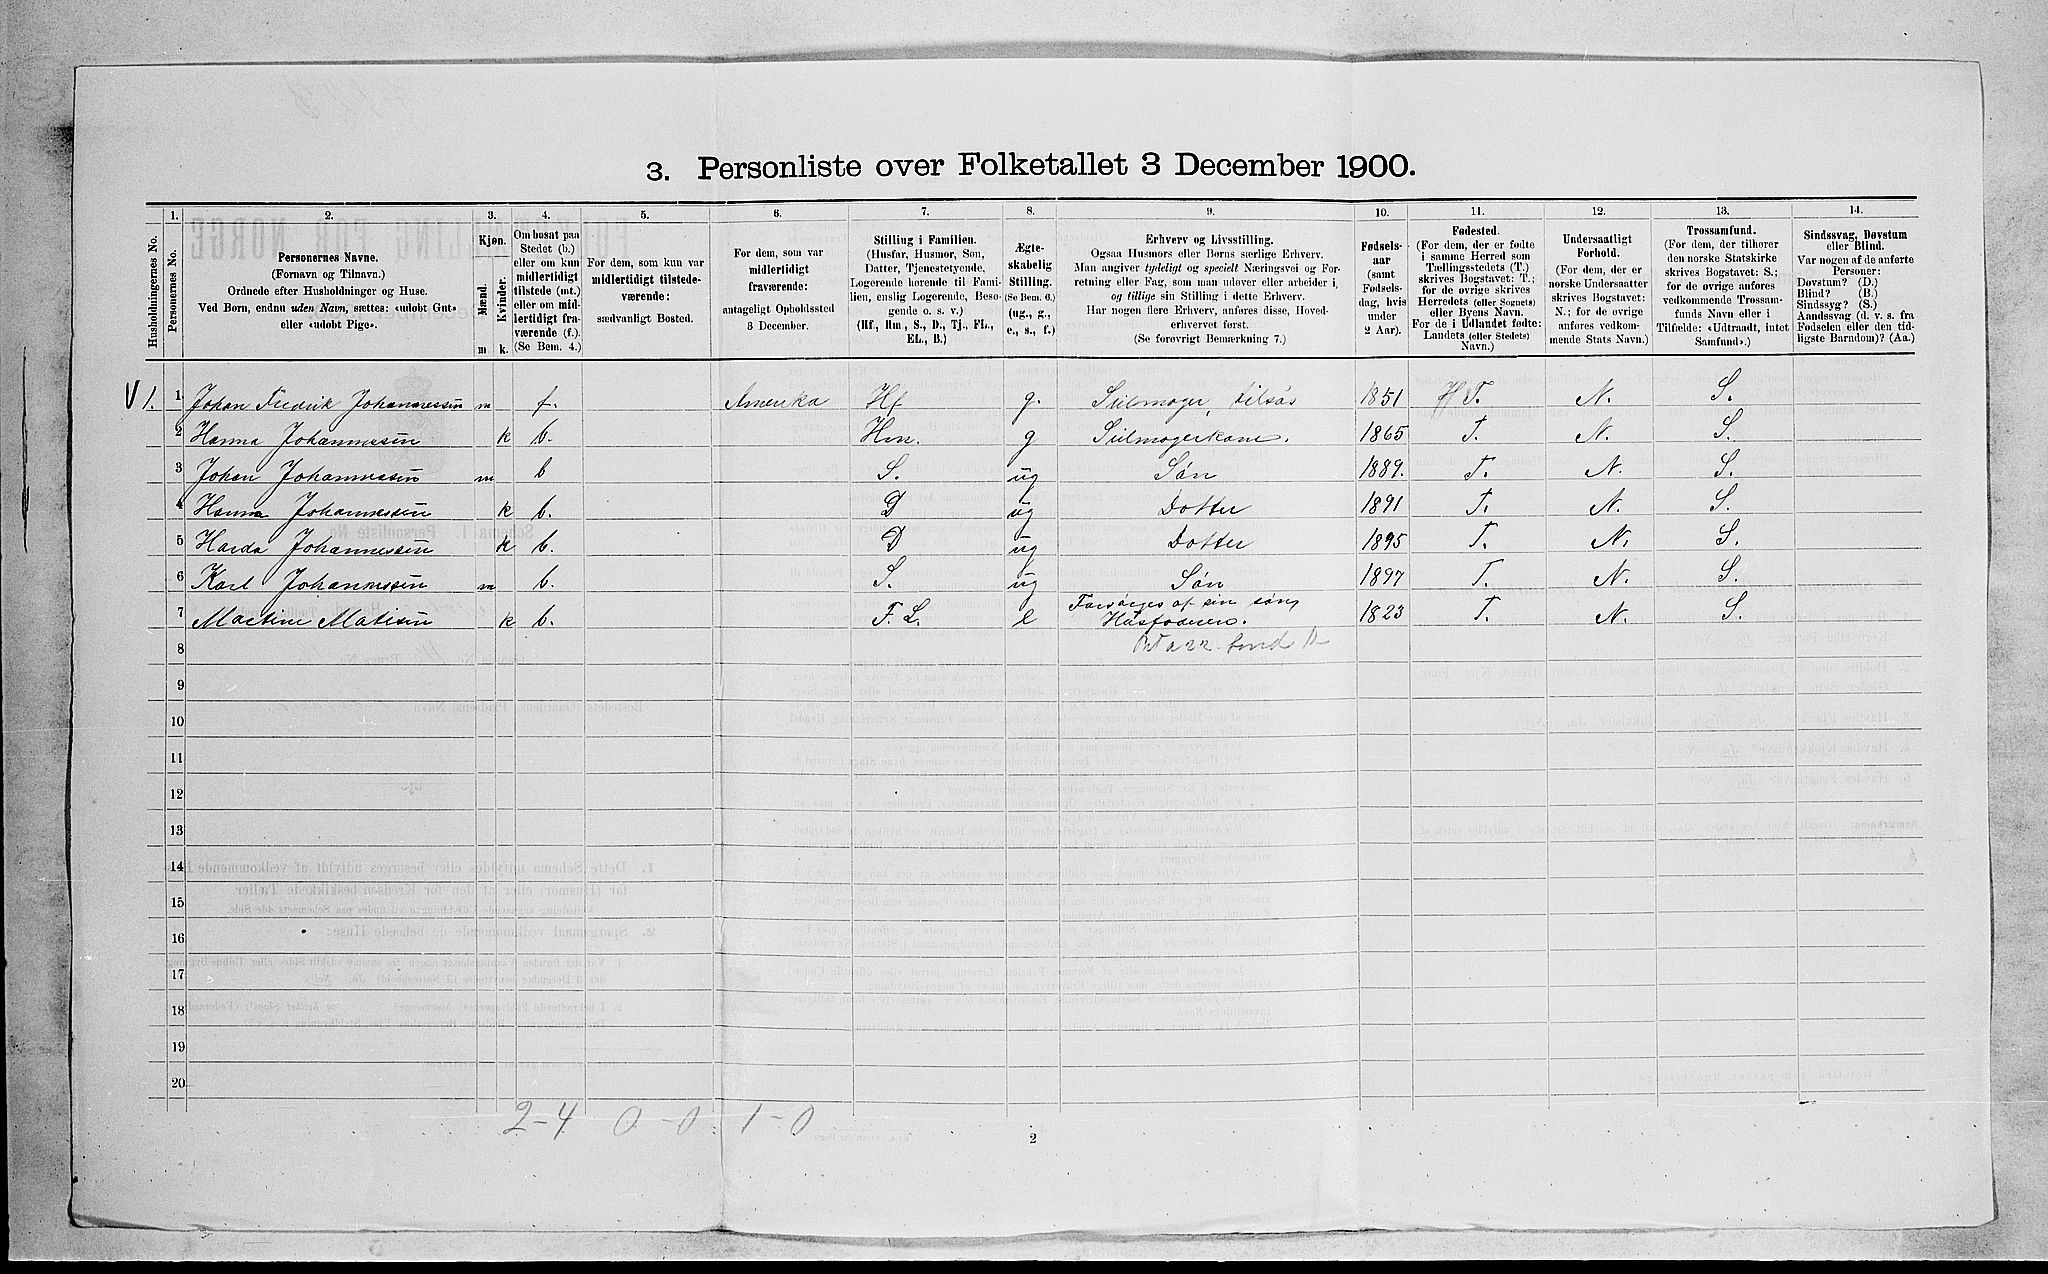 3. Personliste over Folketallet 3 December 1900.
1. 2. 3. 4. 5. 6. 7. 8. 9. 10. 11. 12. 13. 14.
Husholdningernes No.
Personernes No.
Personernes Navne.
(Fornavn og Tilnavn.)
Ordnede efter Husholdninger og Huse.
Ved Børn, endnu uden Navn, sættes: «udøbt Gut»
eller «udøbt Pige».
Kjøn.
Mænd.
Kvinder.
m k.
Om bosat paa
Stedet (b.)
eller om kun
midlertidigt
tilstede (mt.)
eller om mid-
lertidigt fra-
værende (f.).
(Se Bem. 4.)
For dem, som kun var
midlertidigt tilstede-
værende:
sædvanligt Bosted.
For dem, som var
midlertidigt
fraværende:
antageligt Opholdssted
3 December.
Stilling i Familien.
(Husfar, Husmor, Søn,
Datter, Tjenestetyende,
Logerende hørende til Fami-
lien, enslig Logerende, Besø-
gende o. s. v.)
(Hf., Hm., S., D., Tj., FL.,
EL., B.)
Ægte-
skabelig
Stilling.
(Se Bem. 6.)
(ug., g.,
e., s., f.)
Erhverv og Livsstilling.
Ogsaa Husmors eller Børns særlige Erhverv.
Man angiver tydeligt og specielt Næringsvei og For-
retning eller Fag, som man udøver eller arbeider i,
og tillige sin Stilling i dette Erhverv.
Har nogen flere Erhverv, anføres disse, Hoved-
erhvervet først.
(Se forøvrigt Bemærkning 7.)
Fødsels-
aar
(samt
Fødsels-
dag, hvis
under
2 Aar).
Fødested.
(For dem, der er fødte
i samme Herred som
Tællingsstedets (T.)
skrives Bogstavet: T.;
for de øvrige skrives
Herredets (eller Sognets)
eller Byens Navn.
For de i Udlandet fødte:
Landets (eller Stedets)
Navn.)
Undersaatligt
Forhold.
(For dem, der er
norske Undersaatter
skrives Bogstavet:
N.; for de øvrige
anføres vedkom-
mende Stats Navn.)
Trossamfund.
(For dem, der tilhører
den norske Statskirke
skrives Bogstavet: S.;
for de øvrige anføres
vedkommende Trossam-
funds Navn eller i
Tilfælde: «Udtraadt, intet
Samfund».)
Sindssvag, Døvstum
eller Blind.
Var nogen af de anførte
Personer:
Døvstum? (D.)
Blind? (B.)
Sindssyg? (S.)
Aandssvag (d. v. s. fra
Fødselen eller den tid-
ligste Barndom)? (Aa.)
V 1. 1 Johan Fredrik Johannessen m f. Amerika Hf g. Seilmager, tilsøs 1851 T. N. S.
2 Hanna Johannessen k b. Hm. g Seilmagerkone. 1865 T. N. S.
3 Johan Johannessen m b S. ug Søn 1889. T. N. S.
4 Hanna Johannessen k b. D ug Dotter 1891 T. N. S.
5 Harda Johannessen k b. D ug Dotter 1895 T. N. S.
6 Karl Johannessen m b. S. ug Søn 1897 T. N. S.
7 Martine Matisen k b. F. L. e Forsørges af sin søn, Husfaderen. 1823 T. N. S.
8
9
10
11
12
13
14
15
16
17
18
19
20
2-4 0-0 1-0
2